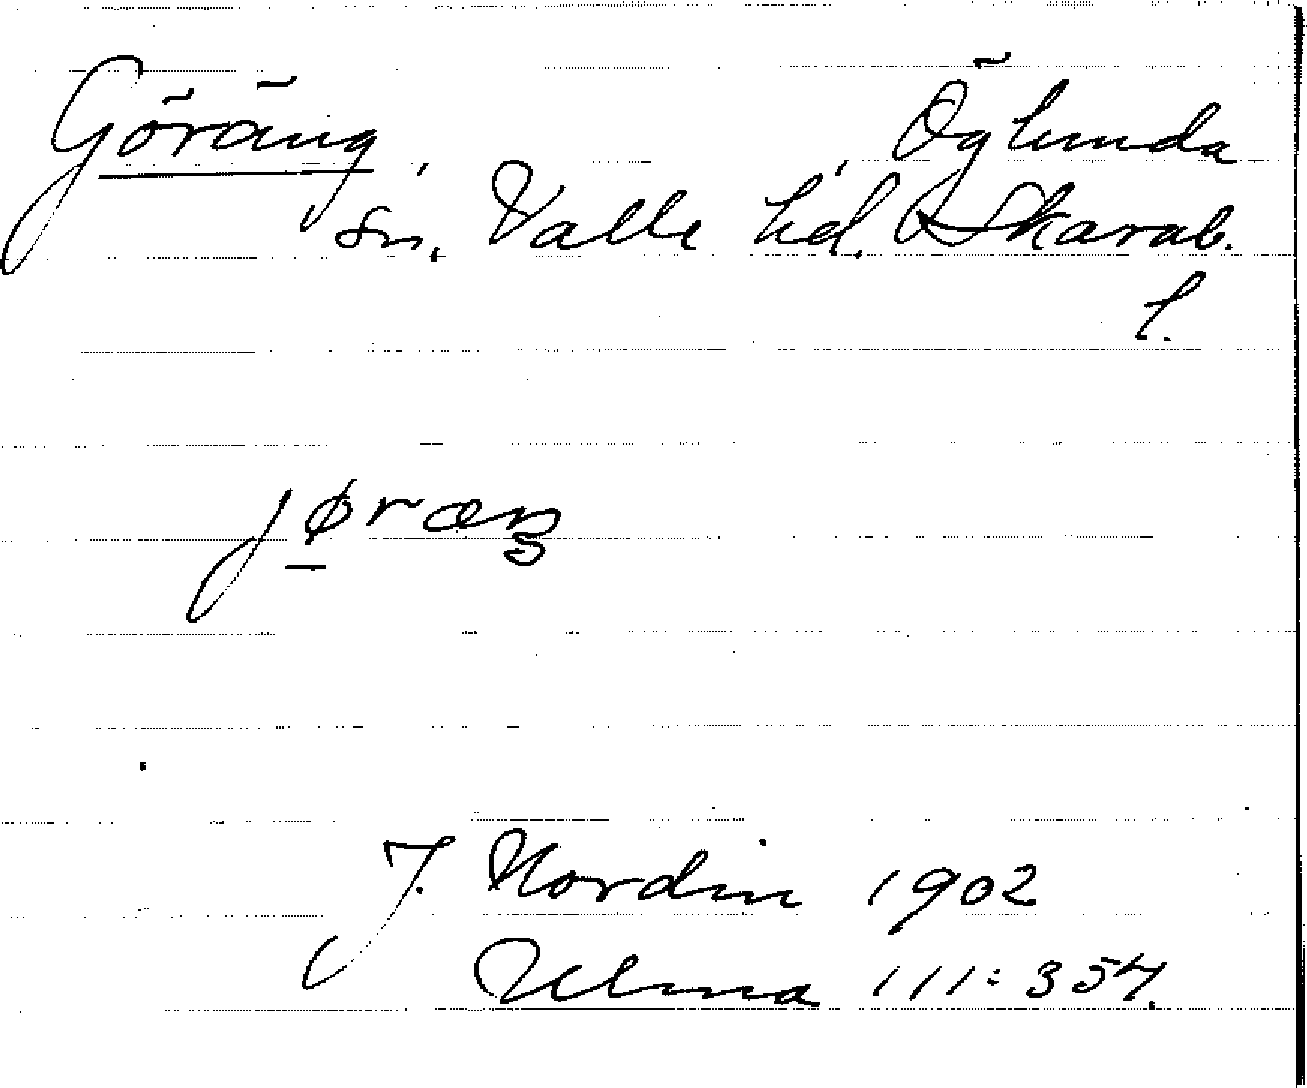 Göräng, Öglunda
sn, Valle hd. Skarab.
l.
jøræŋ
J. Nordin 1902
Ulma 111:354.